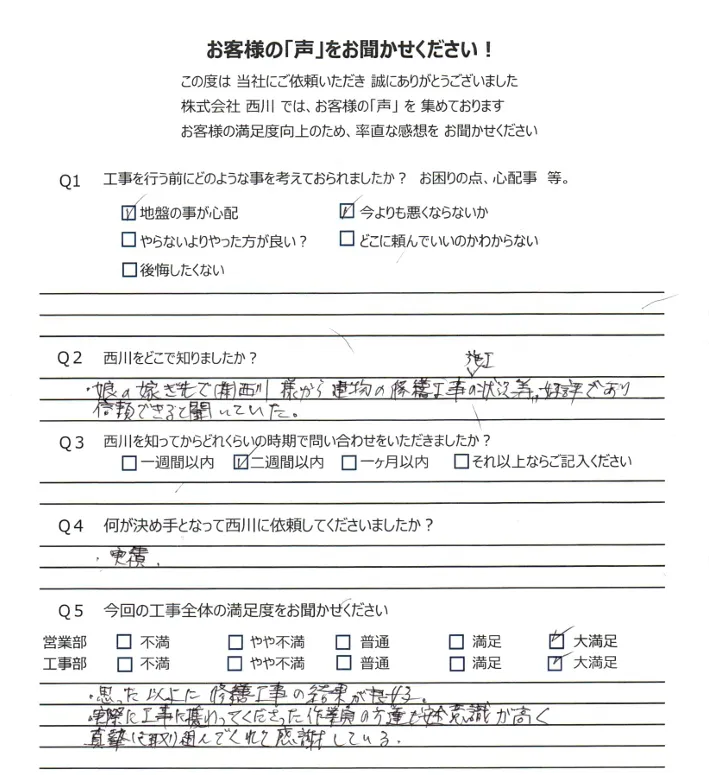 お客様の「声」をお聞かせください！
この度は 当社にご依頼いただき 誠にありがとうございました
株式会社 西川 では、お客様の「声」を 集めております
お客様の満足度向上のため、率直な感想を お聞かせください
Q1 工事を行う前にどのような事を考えておられましたか？ お困りの点、心配事 等。
☑地盤の事が心配 ☑今よりも悪くならないか
□やらないよりやった方が良い？ □どこに頼んでいいのかわからない
□後悔したくない
Q2 西川をどこで知りましたか？
施工
・娘の嫁ぎ先で(株)西川 様から 建物の修繕工事の状況等、好評であり
信頼できると聞いていた。
Q3 西川を知ってからどれくらいの時期で問い合わせをいただきましたか？
□一週間以内 ☑二週間以内 □一ヶ月以内 □それ以上ならご記入ください
Q4 何が決め手となって西川に依頼してくださいましたか？
・実積.
Q5 今回の工事全体の満足度をお聞かせください
営業部 □ 不満 □ やや不満 □ 普通 □ 満足 ☑ 大満足
工事部 □ 不満 □ やや不満 □ 普通 □ 満足 ☑ 大満足
・思った以上に 修繕工事の結果が
実際に工事に携わってくださった作業員の方達が 意識が高く
真摯に取り組んでくれて感謝している.